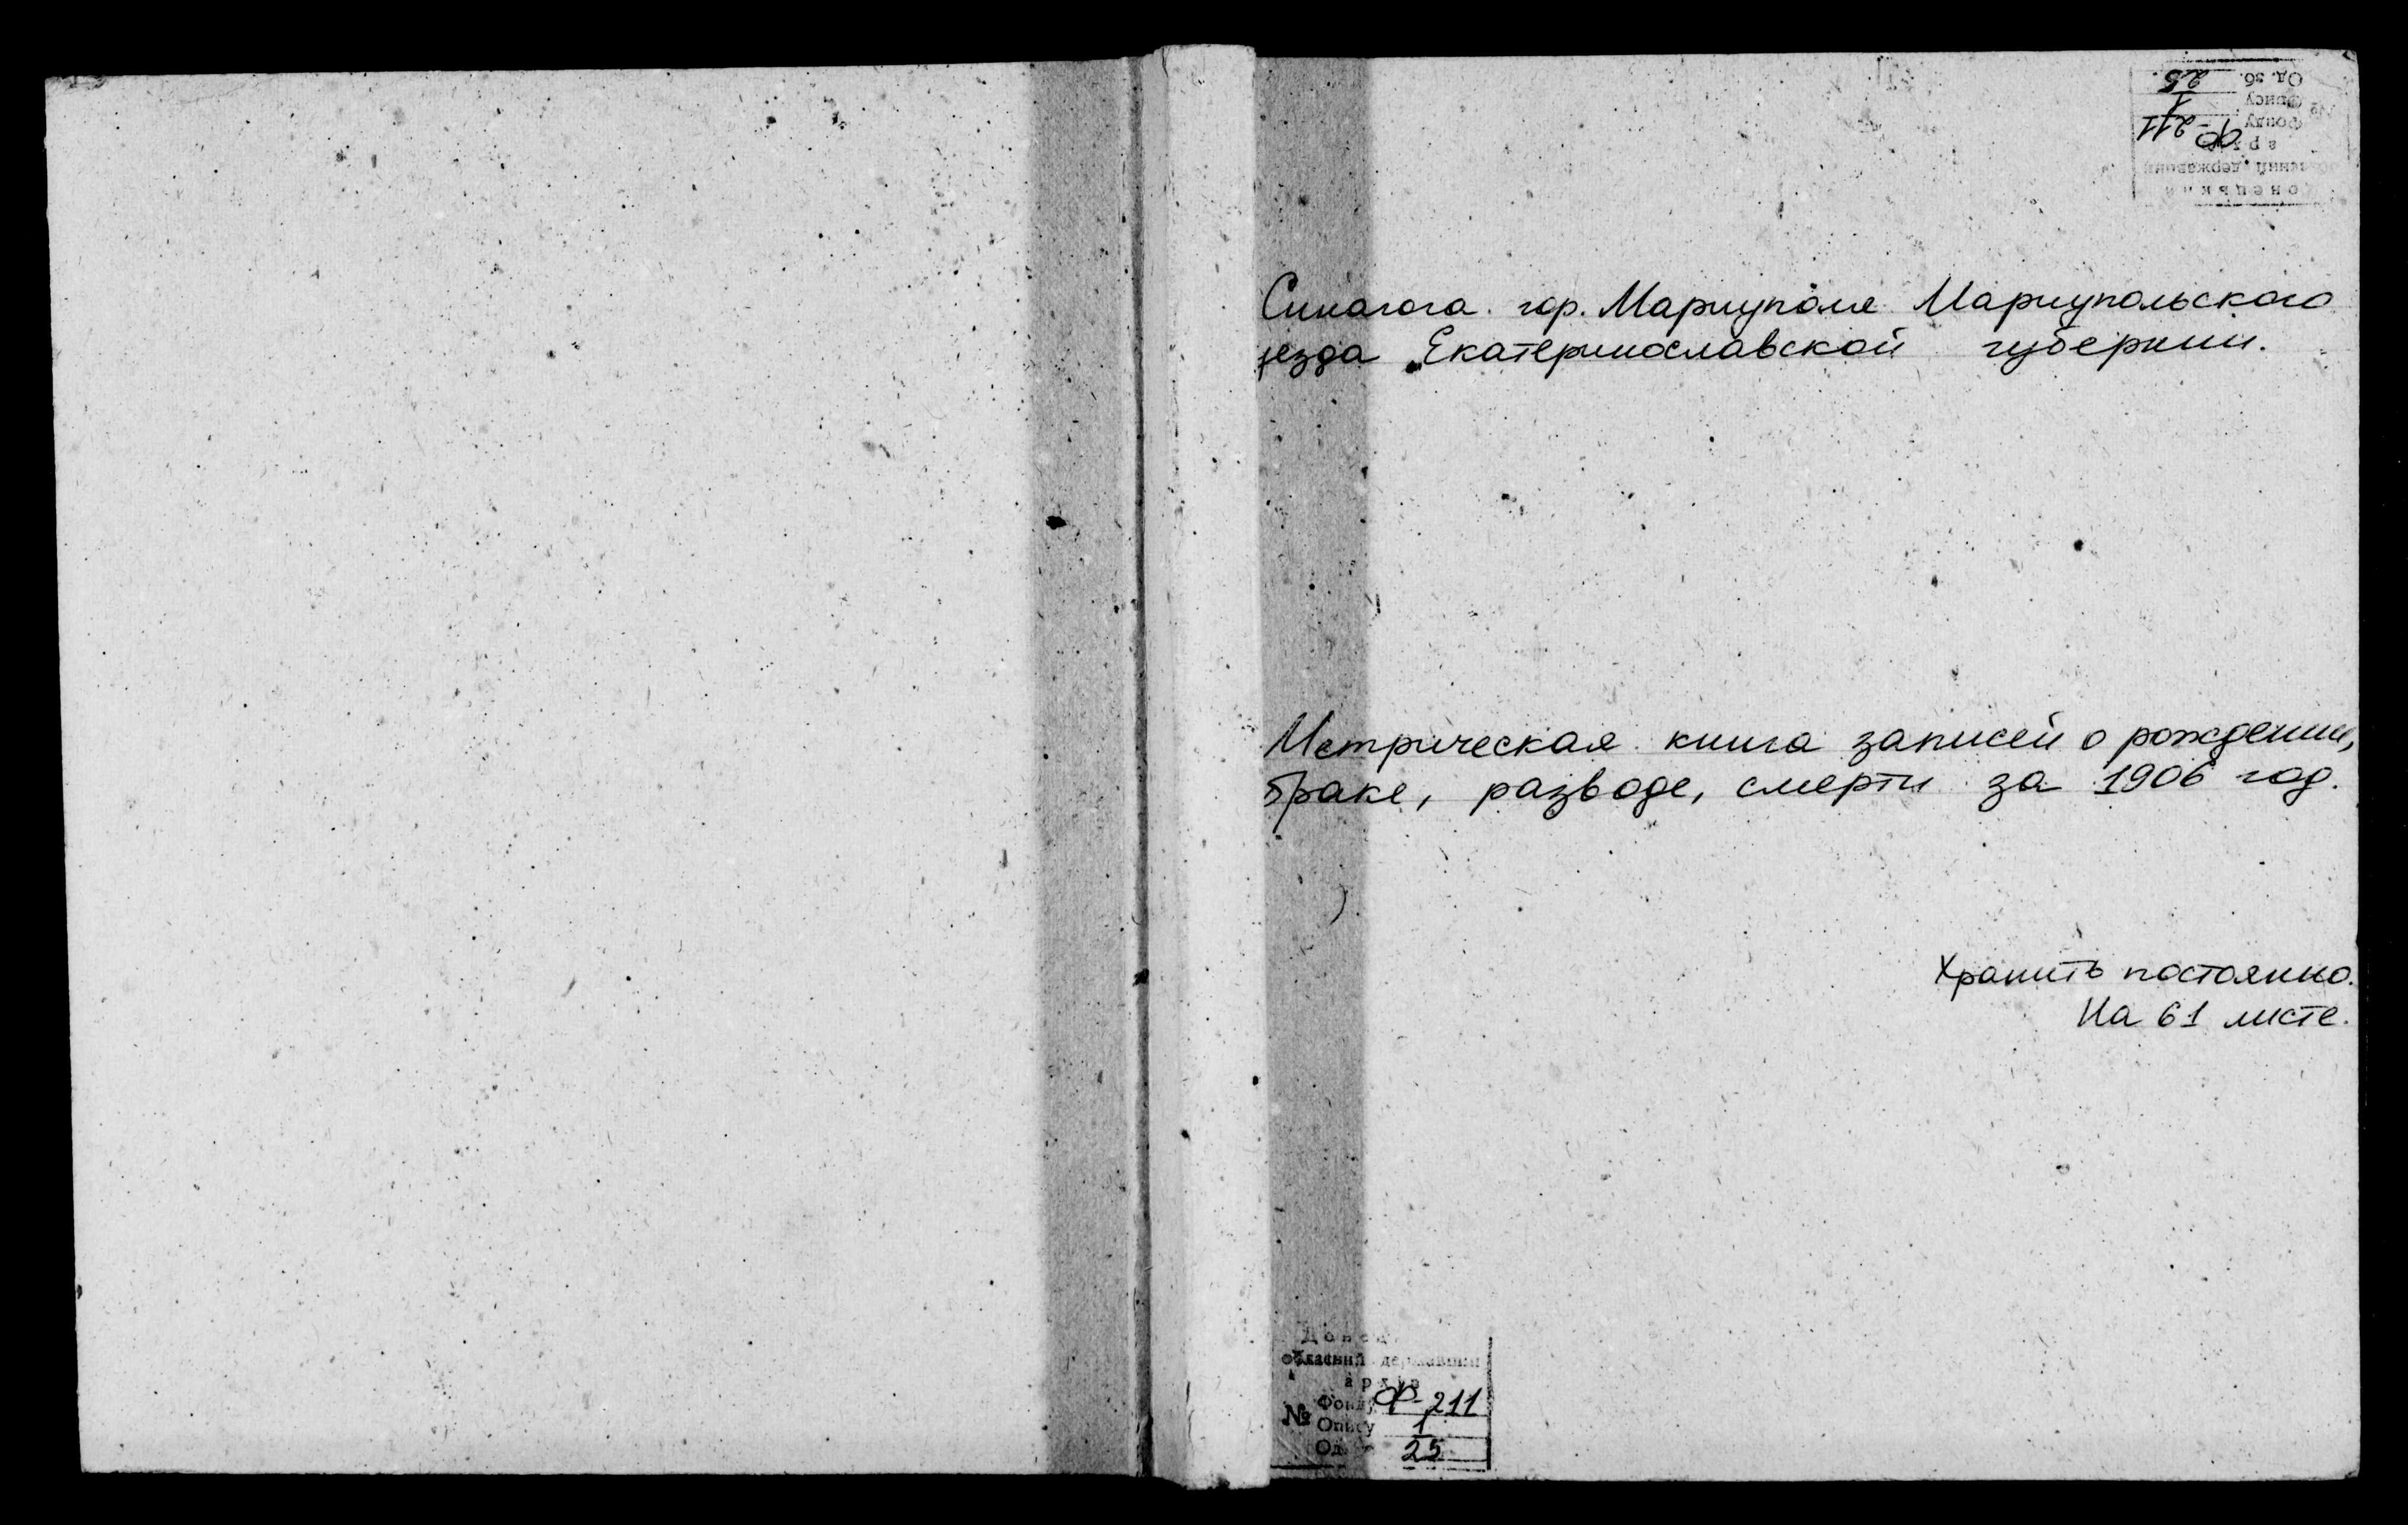 Од. зб. 25
№ Опису 1
Фонду Ф-211
архів
державний
Синагога гор. Мариуполя Мариупольского
уезда Екатеринославской губернии.
Метрическая книга записей о рождении,
браке, разводе, смерти за 1906 год.
Хранить постоянно.
На 61 листе.
обласний державний
архів
Фонду Ф-211
№ Опису 1
Од. 25